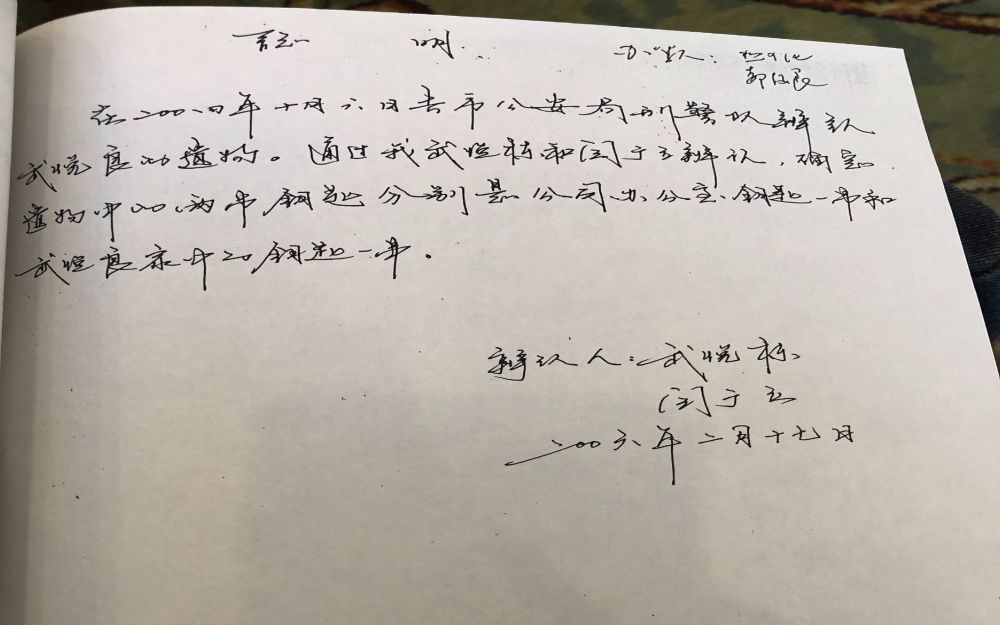 证 明
办案人：
郭
在二00四年十月六日去市公安局刑警队辨认
武悦良的遗物。通过我武悦栋和闫于玉辨认，确定
遗物中的两串钥匙分别是公司办公室钥匙一串和
武悦良家中的钥匙一串。
辨认人：武悦栋
闫于玉
二00六年二月十七日